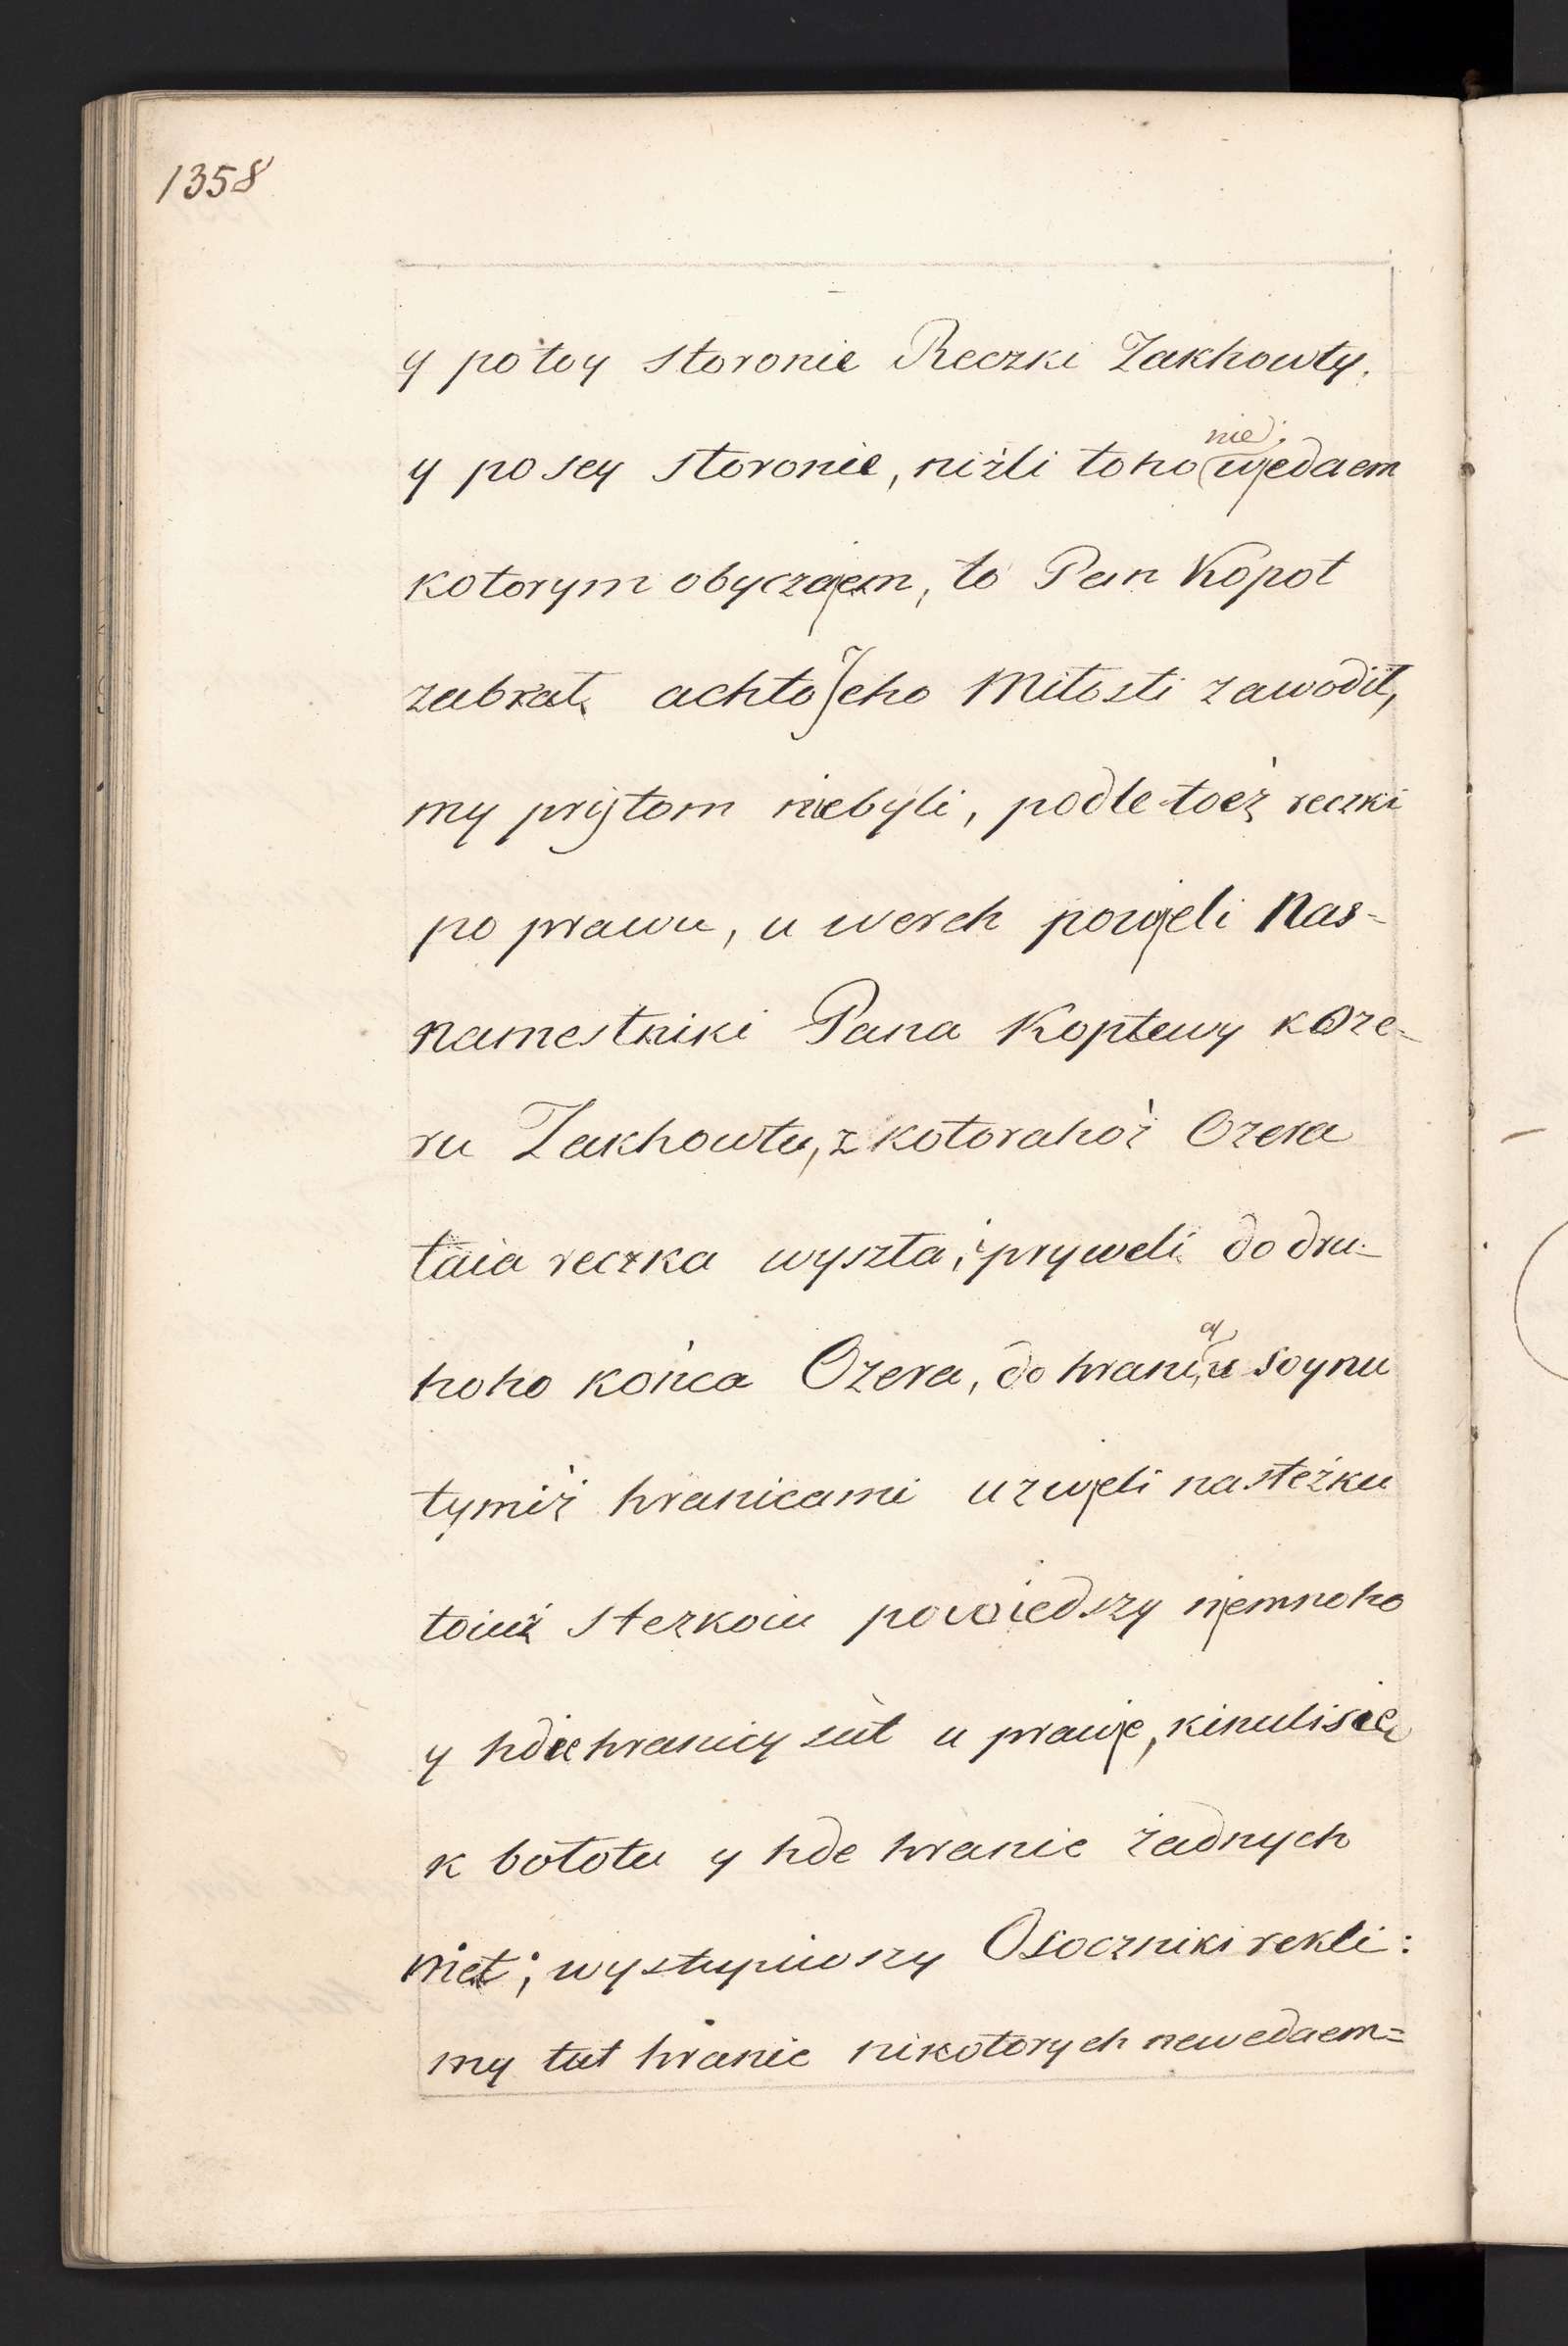 1358
y potoy storonie Reczki Zakhowty.
y posey storonie, niżli toho nie wjedaem
kotorym obyczajem, to Pan Kopot
zabrał achto Jeho Miłosti zawodił,
my prijtom niebyli, podle toeż reczki
po prawu, u werch powjeli Nas-
namestniki Pana Koptewy kOze-
ru Zakhowtu, z kotorahoż Ozera
taia reczka wyszła, i pryweli do dru-
hoho końca Ozera, do hranicy soynu
tymiż hranicami uzwjeli nasteżku
toiuż stezkoiu powiedszy njemnoho
y hdie hranicy sut u prawje, kinulisie
k bołotu y hde hranic żadnych
niet; wystupiwszy Osoczniki rekli:
my tut hranic nikotorych newedaem=